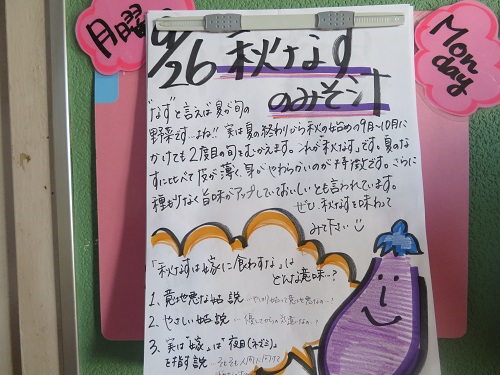 月曜
Monday
9/26 秋なす
のみそ汁
"なす"と言えば夏が旬の
野菜ですよね!! 実は夏の終わりから秋の始めの9月~10月に
かけても2度目の旬をむかえます。これが"秋なす"です。夏のな
すに比べて皮が薄く、身がやわらかいのが特徴です。さらに
種が少なく旨味がアップしていておいしいとも言われています。
ぜひ、秋なすを味わって
みて下さい
「秋なすは嫁に食わすな」は
どんな意味…?
1、意地悪な姑説…やっぱり姑って意地悪なの…?
2、やさしい姑説…優しさからの気遣いなの…?
3、実は"嫁"は"夜目(ネズミ)"
を指す説…そもそも人間に向けた